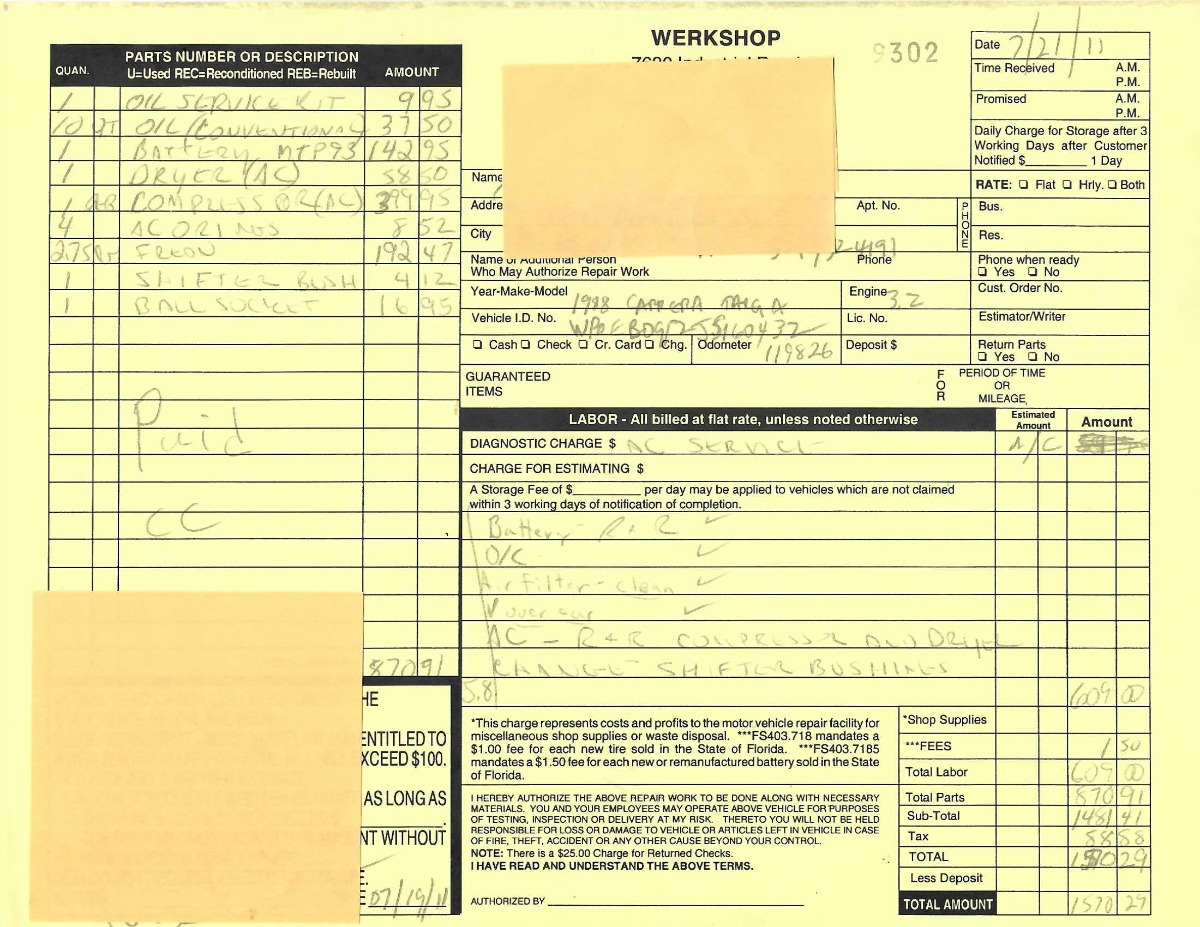 WERKSHOP
9302
Date 7/21/11
Time Received A.M. P.M.
Promised A.M. P.M.
Daily Charge for Storage after 3
Working Days after Customer
Notified $ 1 Day
RATE: ❑ Flat ❑ Hrly. ❑ Both
QUAN. PARTS NUMBER OR DESCRIPTION AMOUNT
U=Used REC=Reconditioned REB=Rebuilt
1 OIL SERVICE KIT 9 95
10 QT OIL (CONVENTIONAL) 37 50
1 BATTERY MTP93 142 95
1 DRYER (AC) 58 50
1 COMPRESSOR (AC) 399 95
4 AC ORINGS 8 52
2.75 FREON 192 47
1 SHIFTER BUSH 4 12
1 BALL SOCKET 16 95
Paid
CC
870 91
Name
Addre
Apt. No.
City
PHONE
Bus.
Res.
4191
Name of Additional Person
Who May Authorize Repair Work
Phone
Phone when ready
❑ Yes ❑ No
Year-Make-Model 1988 CARRERA TARGA
Engine 3.2
Cust. Order No.
Vehicle I.D. No.
Lic. No.
Estimator/Writer
❑ Cash ❑ Check ❑ Cr. Card ❑ Chg.
Odometer 119826
Deposit $
Return Parts
❑ Yes ❑ No
GUARANTEED
ITEMS
FOR
PERIOD OF TIME
OR
MILEAGE
LABOR - All billed at flat rate, unless noted otherwise
Estimated Amount
Amount
DIAGNOSTIC CHARGE $ AC SERVICE N/C
CHARGE FOR ESTIMATING $
A Storage Fee of $ per day may be applied to vehicles which are not claimed
within 3 working days of notification of completion.
Battery - R + R ✓
O/C ✓
Air Filter - clean ✓
✓ over car ✓
AC - R+R COMPRESSOR AND DRYER
CHANGE SHIFTER BUSHINGS
5.8 609 00
*This charge represents costs and profits to the motor vehicle repair facility for
miscellaneous shop supplies or waste disposal. ***FS403.718 mandates a
$1.00 fee for each new tire sold in the State of Florida. ***FS403.7185
mandates a $1.50 fee for each new or remanufactured battery sold in the State
of Florida.
I HEREBY AUTHORIZE THE ABOVE REPAIR WORK TO BE DONE ALONG WITH NECESSARY
MATERIALS. YOU AND YOUR EMPLOYEES MAY OPERATE ABOVE VEHICLE FOR PURPOSES
OF TESTING, INSPECTION OR DELIVERY AT MY RISK. THERETO YOU WILL NOT BE HELD
RESPONSIBLE FOR LOSS OR DAMAGE TO VEHICLE OR ARTICLES LEFT IN VEHICLE IN CASE
OF FIRE, THEFT, ACCIDENT OR ANY OTHER CAUSE BEYOND YOUR CONTROL.
NOTE: There is a $25.00 Charge for Returned Checks.
I HAVE READ AND UNDERSTAND THE ABOVE TERMS.
AUTHORIZED BY
*Shop Supplies
***FEES 1 50
Total Labor 609 00
Total Parts 870 91
Sub-Total 1481 41
Tax 88 88
TOTAL 1570 29
Less Deposit
TOTAL AMOUNT 1570 29
HE
ENTITLED TO
XCEED $100.
AS LONG AS
NT WITHOUT
E.
E 07/19/11